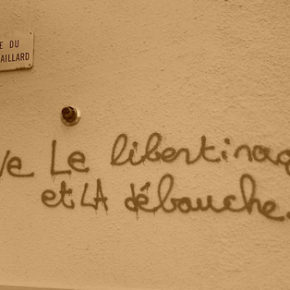 E DU
AILLARD
ve Le libertinag
et LA débauche.